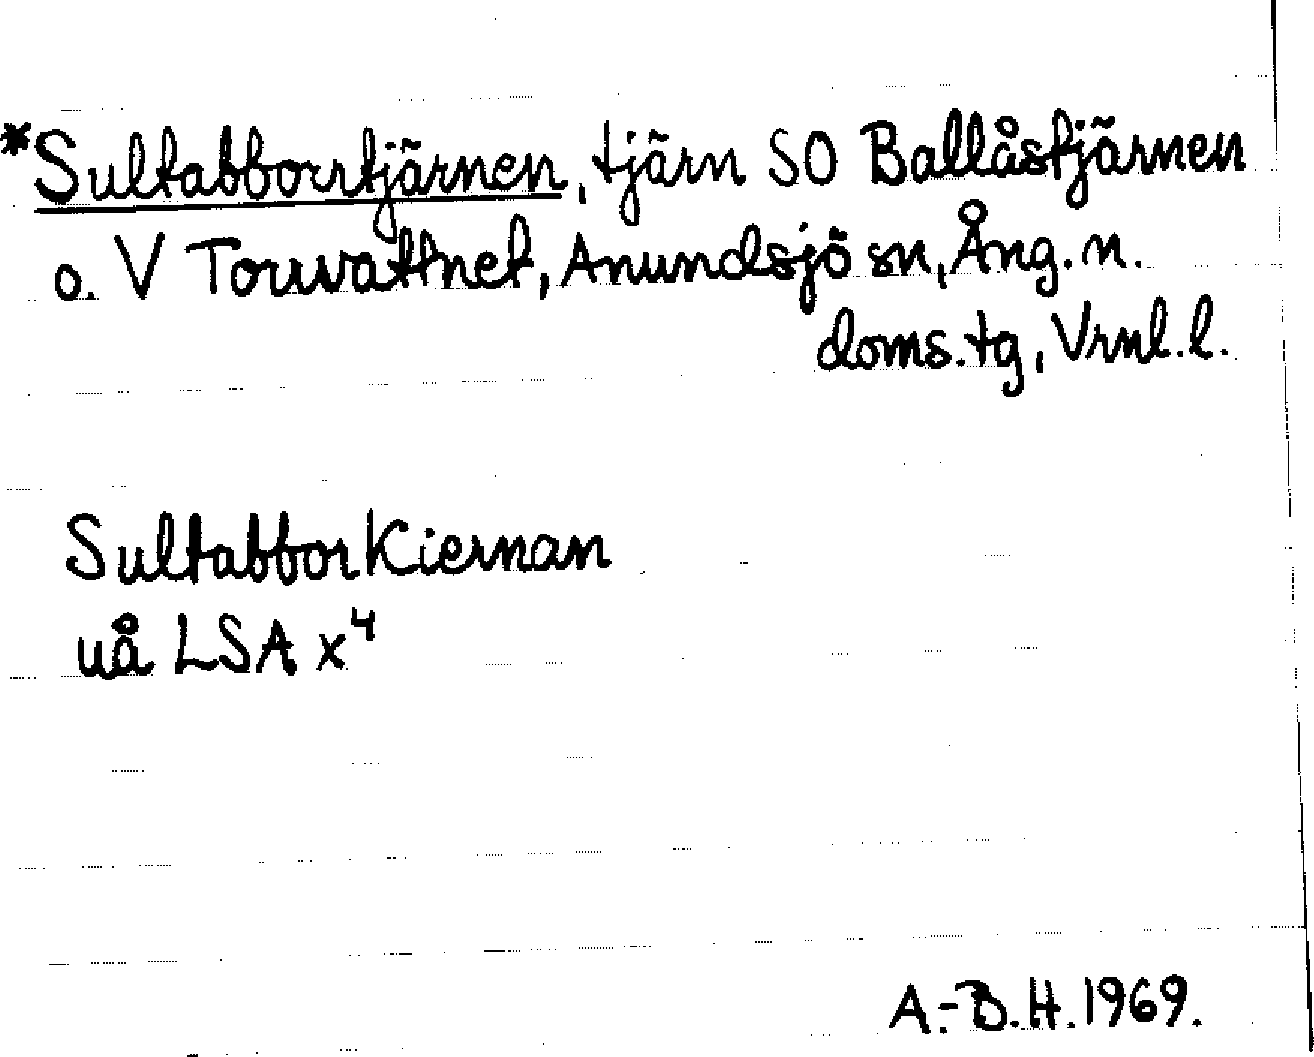 *Sultabborrtjärnen, tjärn SO Ballåstjärnen
o. V Torrvattnet, Anundsjö sn, Ång. n.
doms. tg, Vrnl. l.
SultabborKiernan
uå LSA x⁴
A.-B.H. 1969.